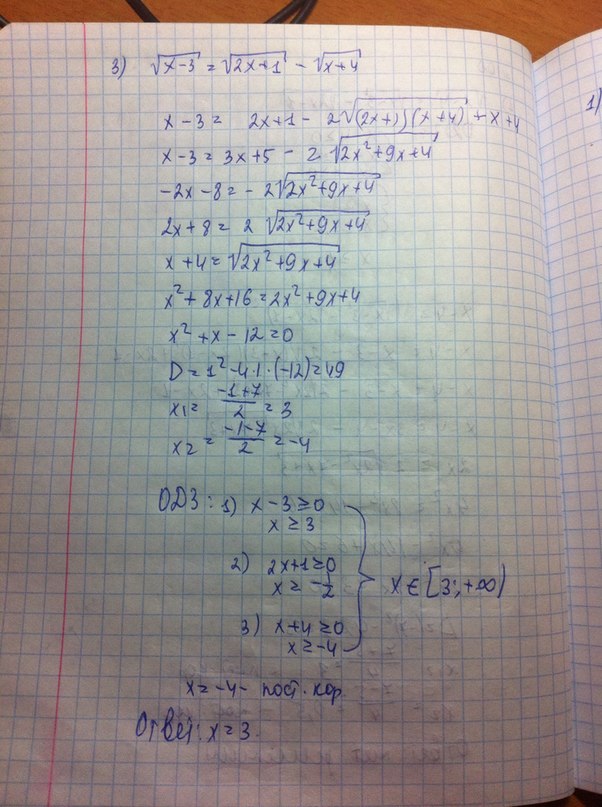 3) √(x-3) = √(2x+1) - √(x+4)
x-3 = 2x+1 - 2√((2x+1)(x+4)) + x+4
x-3 = 3x+5 - 2√(2x²+9x+4)
-2x-8 = -2√(2x²+9x+4)
2x+8 = 2√(2x²+9x+4)
x+4 = √(2x²+9x+4)
x²+8x+16 = 2x²+9x+4
x²+x-12=0
D = 1²-4·1·(-12)=49
x1 = (-1+7)/2 = 3
x2 = (-1-7)/2 = -4
ОДЗ: 1) x-3≥0
x≥3
2) 2x+1≥0
x ≥ -1/2
x∈[3;+∞)
3) x+4≥0
x≥-4
x=-4- пост. кор.
Ответ: x=3.
1)